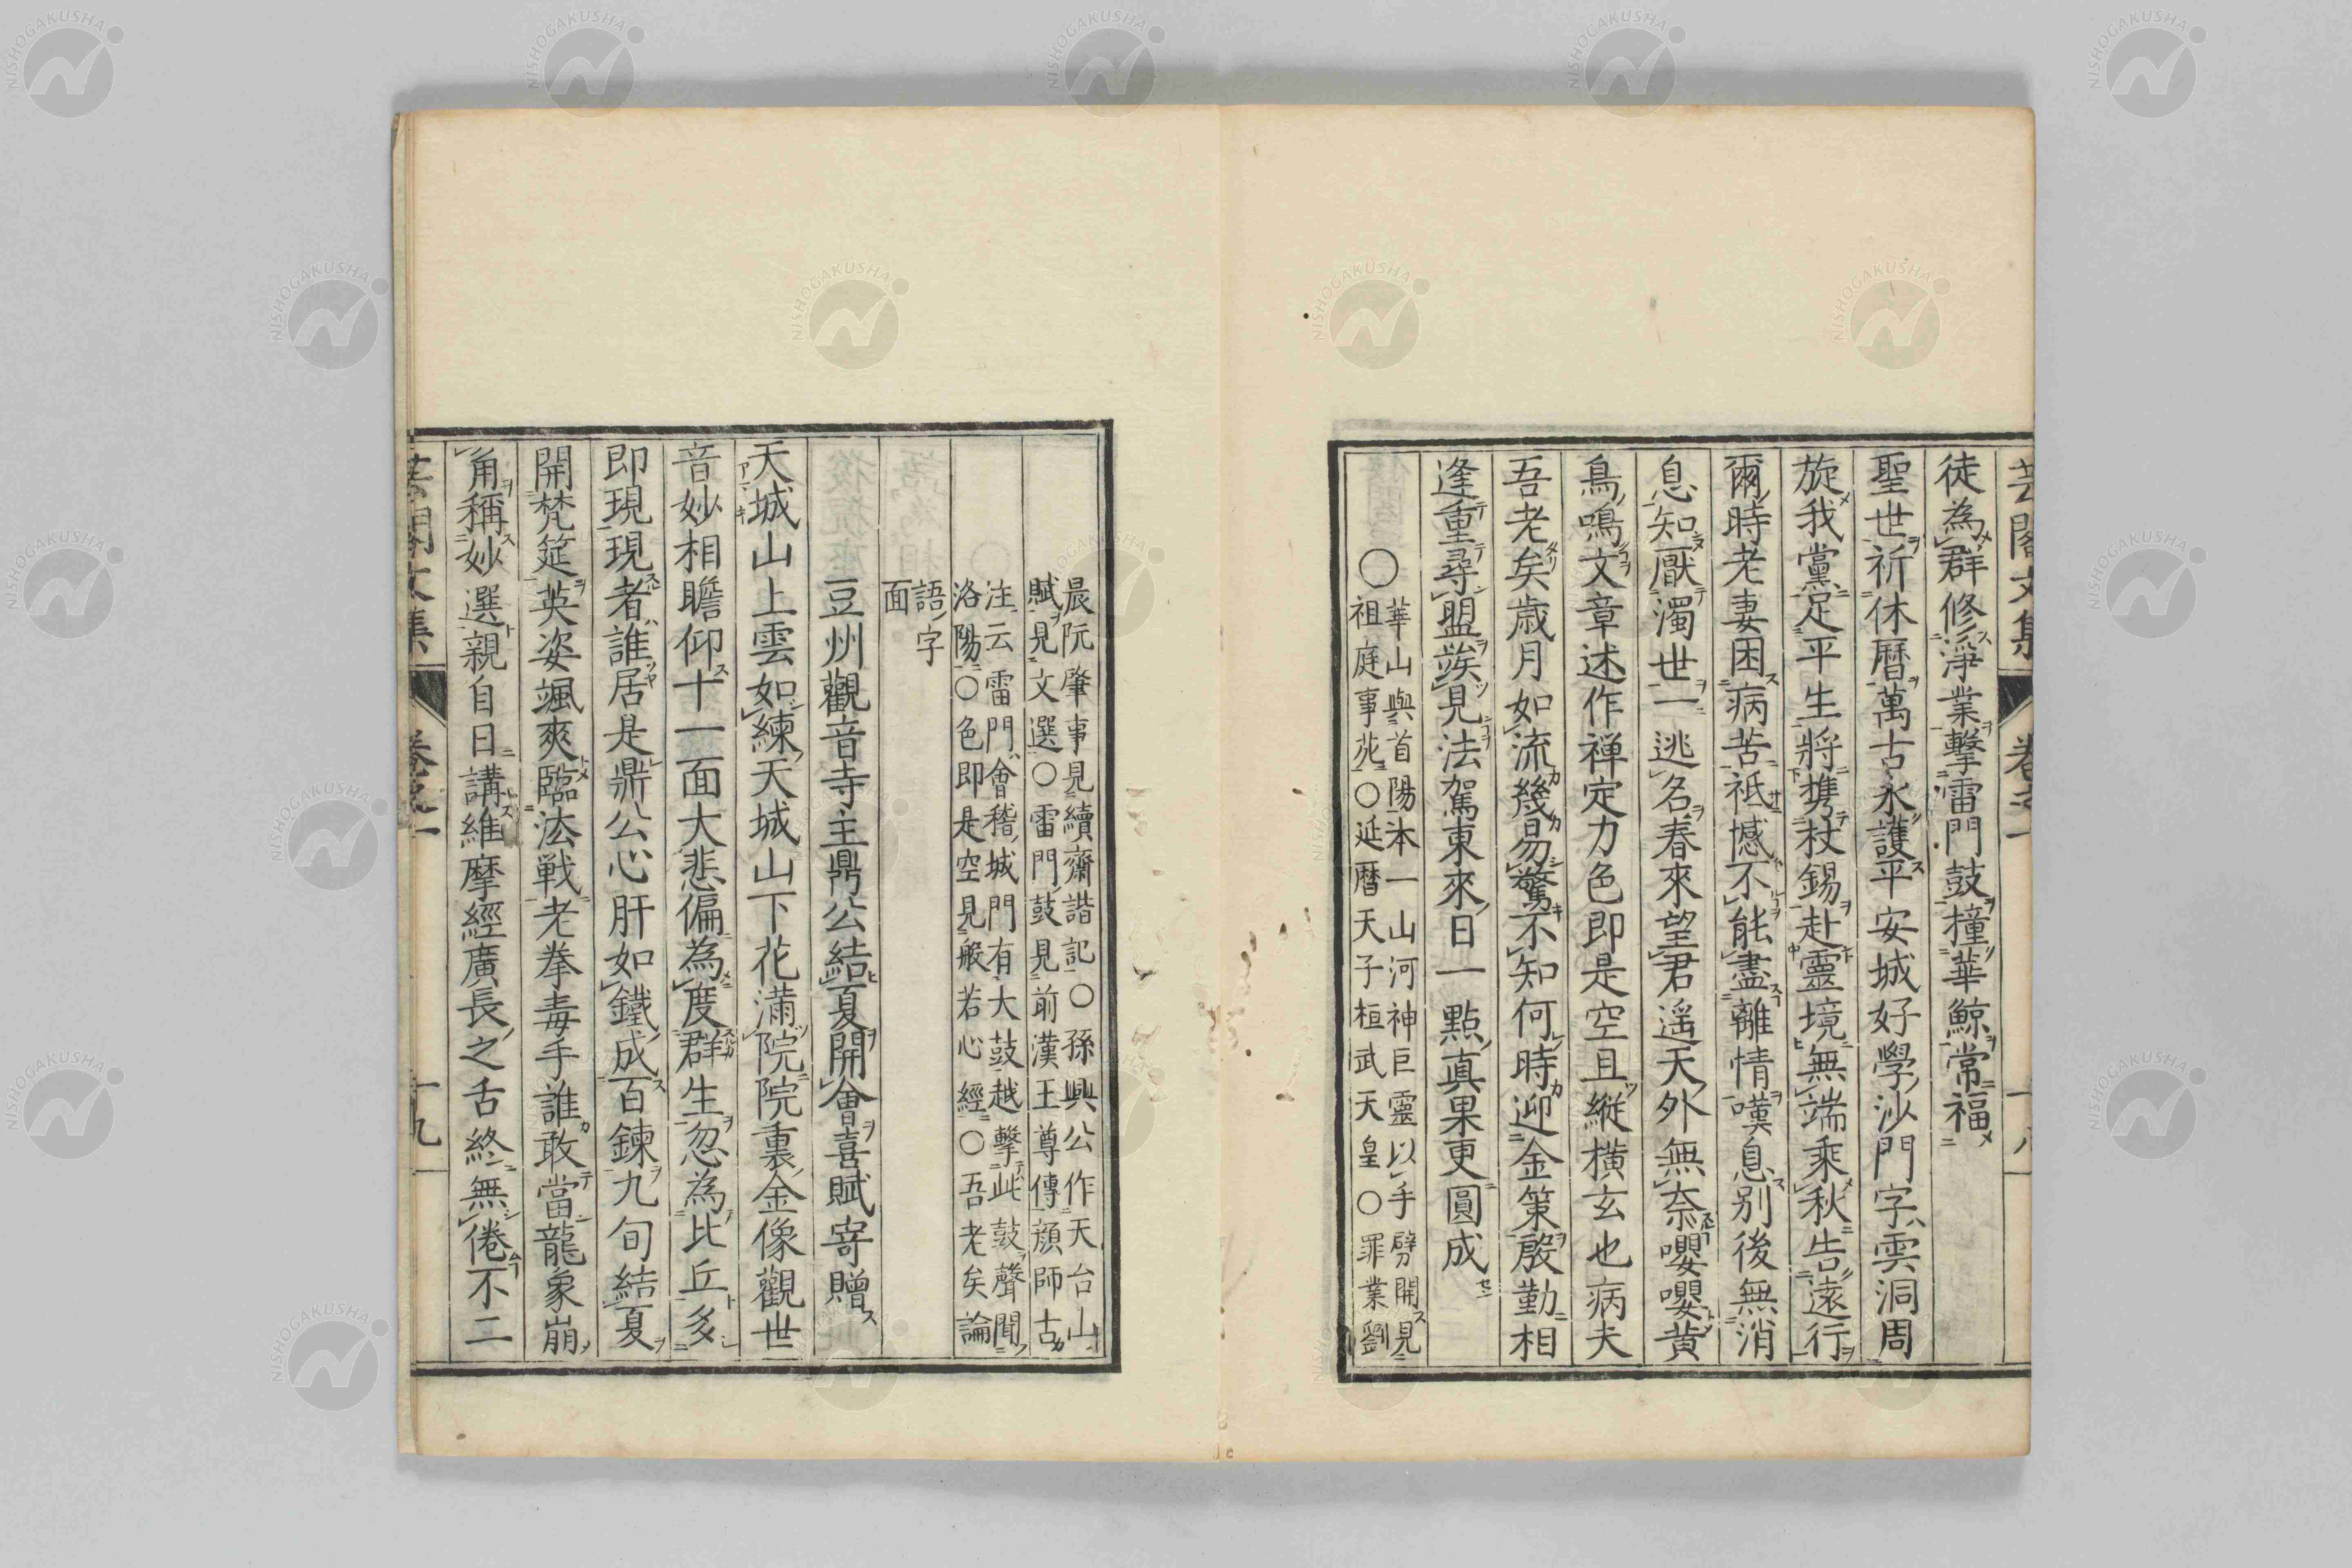 芸閣文集 卷之一 十八
徒為群修淨業擊雷門鼓撞華鯨常福
聖世祈休曆萬古永護平安城好學沙門字雲洞周
旋我黨定平生將携杖錫赴靈境無端乘秋告遠行
爾時老妻困病苦祗憾不能盡離情嘆息別後無消
息知厭濁世一逃名春來望君遥天外無奈嚶嚶黄
鳥鳴文章述作禅定力色即是空且縱橫玄也病夫
吾老矣歳月如流幾曷驚不知何時迎金策慇勤相
逢重尋盟竢見法駕東來日一點真果更圓成
〇華山與首陽本一山河神巨靈以手劈開見
祖庭事苑〇延曆天子桓武天皇〇罪業劉
晨阮肇事見續齋諧記〇孫興公作天台山
賦見文選〇雷門鼓見前漢王尊傳顔師古
注云雷門會稽城門有大鼓越擊此鼓聲聞
洛陽〇色即是空見般若心經〇吾老矣論
語字
面
豆州觀音寺主鼎公結夏開會喜賦寄贈
天城山上雲如練天城山下花滿院院裏金像觀世
音妙相瞻仰十一面大悲偏為度群生忽為比丘多
即現現者誰居是鼎公心肝如鐵成百鍊九旬結夏
開梵筵英姿颯爽臨法戦老拳毒手誰敢當龍象崩
角稱妙選親自日講維摩經廣長之舌終無倦不二
芸閣文集 卷之一 十九
NISHOGAKUSHA